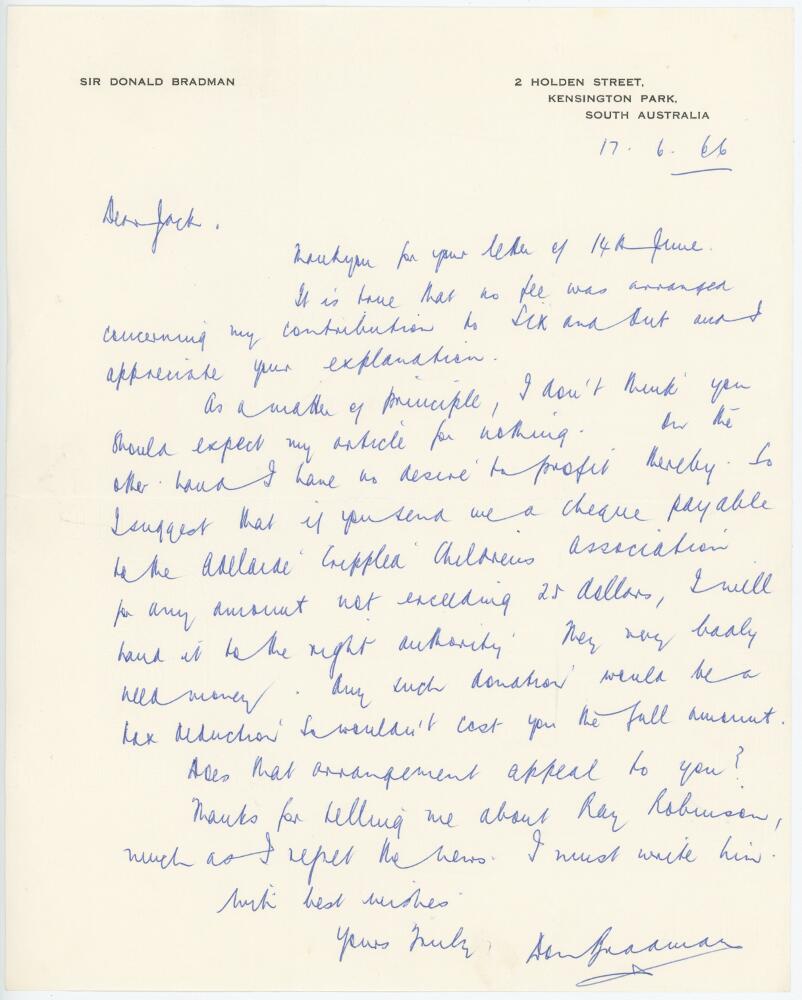 SIR DONALD BRADMAN
2 HOLDEN STREET,
KENSINGTON PARK,
SOUTH AUSTRALIA
17. 6. 66
Dear Jack.
Thankyou for your letter of 14th June.
It is true that no fee was arranged
concerning my contribution to Six and Out and I
appreciate your explanation.
As a matter of principle, I don't think you
should expect my article for nothing. On the
other hand I have no desire to profit thereby. So
I suggest that if you send me a cheque payable
to the Adelaide Crippled Childrens Association
for any amount not exceeding 25 dollars, I will
hand it to the right authority. They very badly
need money. Any such donation would be a
tax deduction so wouldn't cost you the full amount.
Does that arrangement appeal to you?
Thanks for telling me about Ray Robinson,
much as I regret the news. I must write him.
With best wishes
Yours Truly
Don Bradman